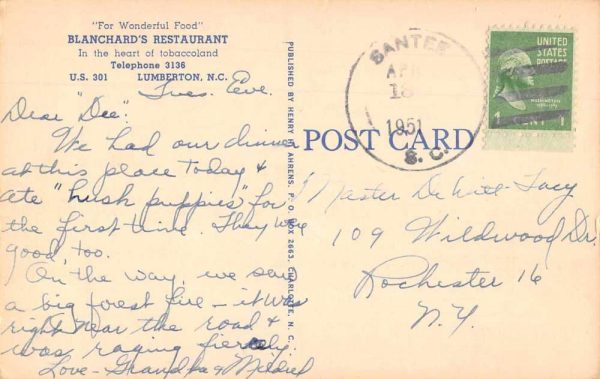 "For Wonderful Food"
BLANCHARD'S RESTAURANT
In the heart of tobaccoland
Telephone 3136
U.S. 301 LUMBERTON, N.C.
Tues. Eve.
Dear "Dee":
We had our dinner
at this place today &
ate "hush puppies" for
the first time. They were
good, too.
On the way, we saw
a big forest fire - it was
right near the road &
was raging fiercely.
Love - Grandpa & Mildred
PUBLISHED BY HENRY H. AHRENS, P. O. BOX 2663, CHARLOTTE, N. C.
POST CARD
SANTEE
APR
18
1951
S. C.
UNITED
STATES
POSTAGE
WASHINGTON
1 CENT 1
Master DeWitt Tacy
109 Wildwood Dr.
Rochester 16
N.Y.